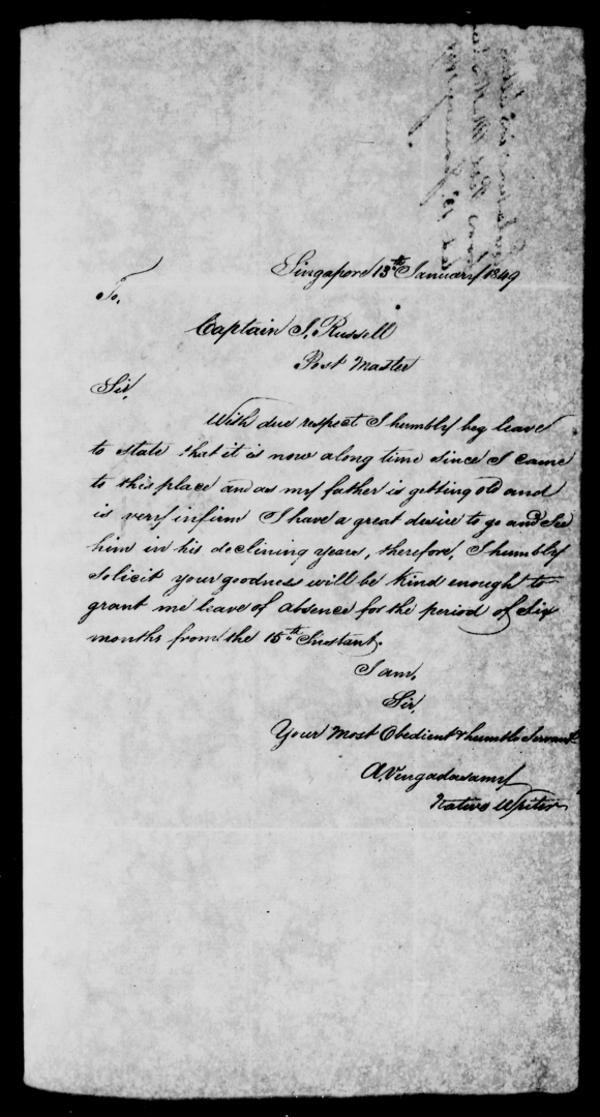 Singapore 13th January 1849
To,
Captain J. Russell
Post Master
Sir,
With due respect I humbly beg leave
to state that it is now a long time since I came
to this place and as my father is getting old and
is very infirm I have a great desire to go and see
him in his declining years, therefore, I humbly
solicit your goodness will be kind enough to
grant me leave of absence for the period of six
months from the 15th Instant.
I am,
Sir,
Your Most Obedient & humble Servant
A. Vengadasamy
Native Writer